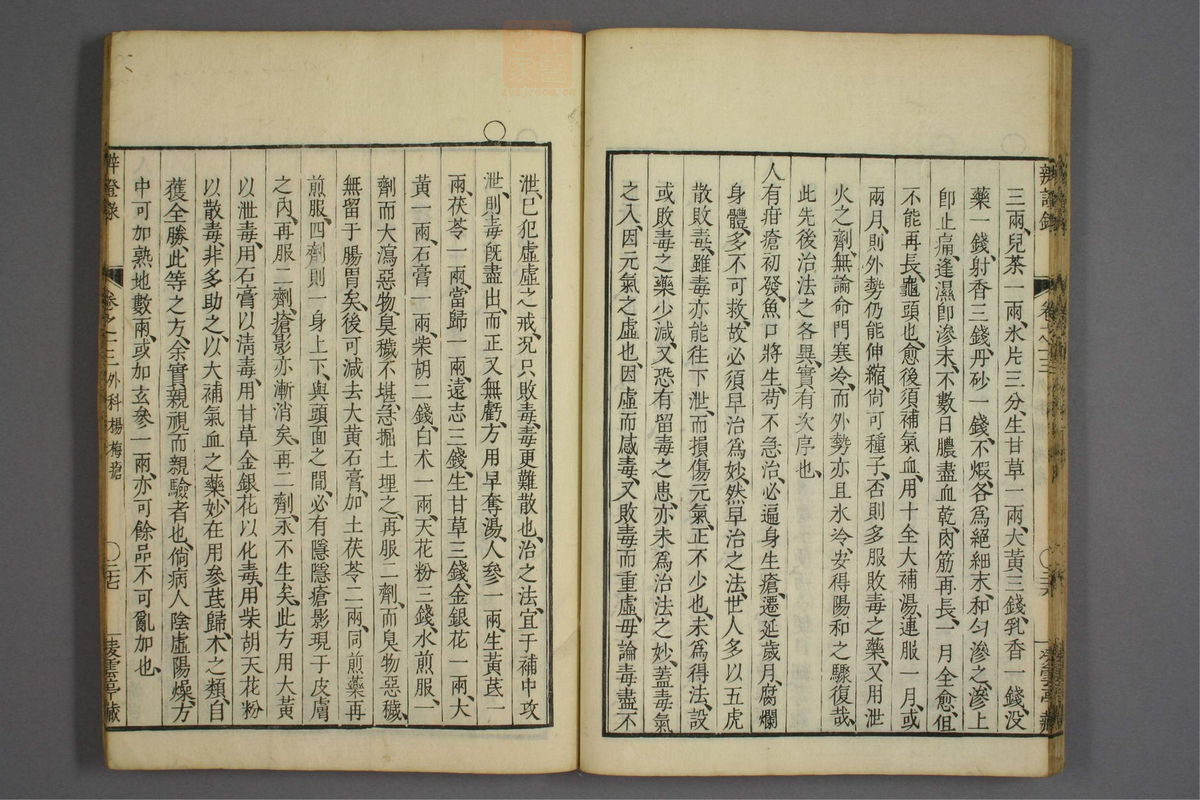 三兩、兒茶一兩、氷片三分、生甘草一兩、大黃三錢、乳香一錢、沒
藥一錢、射香三錢、丹砂一錢、不煆、各爲絕細末、和勻滲之、滲上
卽止痛、逢濕卽滲末、不數日膿盡血乾、肉筋再長、一月全愈、但
不能再長龜頭也、愈後須補氣血、用十全大補湯連服一月、或
兩月、則外勢仍能伸縮、尙可種子、否則多服敗毒之藥、又用泄
火之劑、無論命門寒冷、而外勢亦且氷冷、安得陽和之驟復哉、
此先後治法之各異、實有次序也、
人有疳瘡初發、魚口將生、苟不急治、必遍身生瘡、遷延歲月、腐爛
身體、多不可救、故必須早治爲妙、然早治之法、世人多以五虎
散敗毒、雖毒亦能往下泄、而損傷元氣、正不少也、未爲得法、設
或敗毒之藥少減、又恐有留毒之患、亦未爲治法之妙、蓋毒氣
之入、因元氣之虛也、因虛而感毒、又敗毒而重虛、毋論毒盡不
辨證錄
卷之十三
淩雲亭藏
泄、已犯虛虛之戒、况只敗毒、毒更難散也、治之法、宜于補中攻
泄、則毒旣盡出、而正又無虧、方用早奪湯、人參一兩、生黃茋一
兩、茯苓一兩、當歸一兩、遠志三錢、生甘草三錢、金銀花一兩、大
黃一兩、石膏一兩、柴胡二錢、白朮一兩、天花粉三錢、水煎服、一
劑而大瀉惡物、臭穢不堪、急掘土埋之、再服二劑、而臭物惡穢、
無留于腸胃矣、後可減去大黃石膏、加土茯苓二兩、同煎藥再
煎服、四劑則一身上下、與頭面之間、必有隱隱瘡影、現于皮膚
之內、再服二劑、瘡影亦漸消矣、再二劑、永不生矣、此方用大黃
以泄毒、用石膏以淸毒、用甘草金銀花以化毒、用柴胡天花粉
以散毒、非多助之、以大補氣血之藥、妙在用參茋歸朮之類、自
獲全勝、此等之方、余實親視而親驗者也、倘病人陰虛陽燥、方
中可加熟地數兩、或加玄參一兩、亦可、餘品不可亂加也、
辨證錄
卷之十三 外科 楊梅瘡
二七
淩雲亭藏